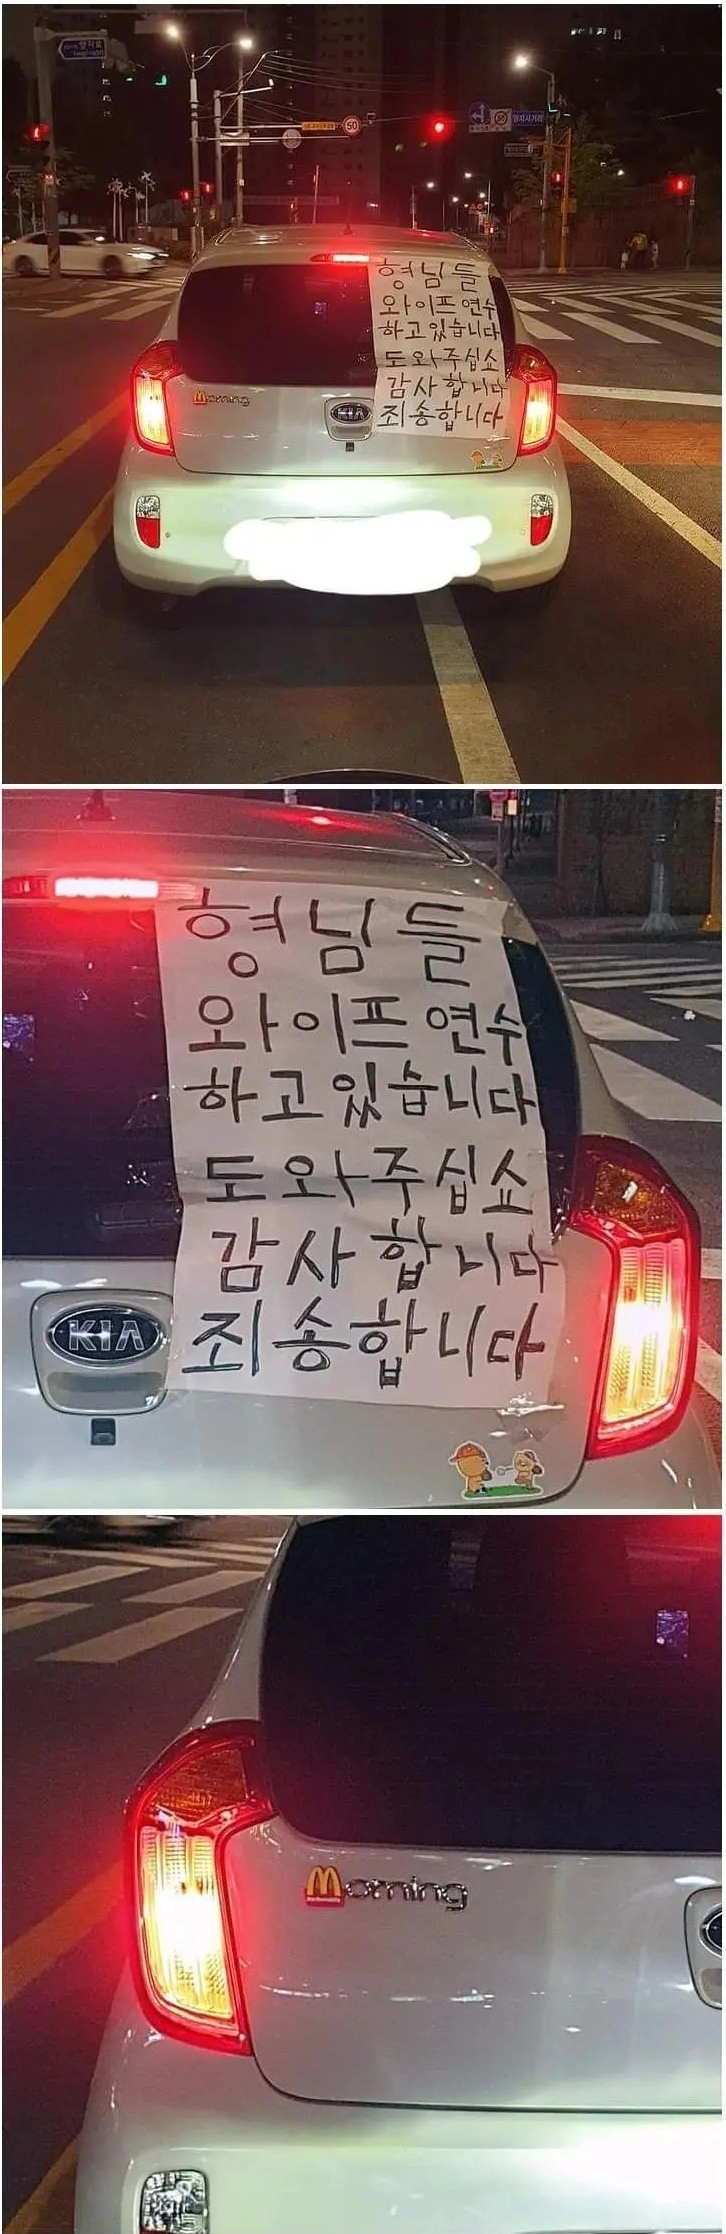 50
형님들
와이프 연수
하고있습니다
도와주십쇼
감사합니다
죄송합니다
Morning
KIA
형님들
와이프 연수
하고있습니다
도와주십쇼
감사합니다
KIA
죄송합니다
Morning